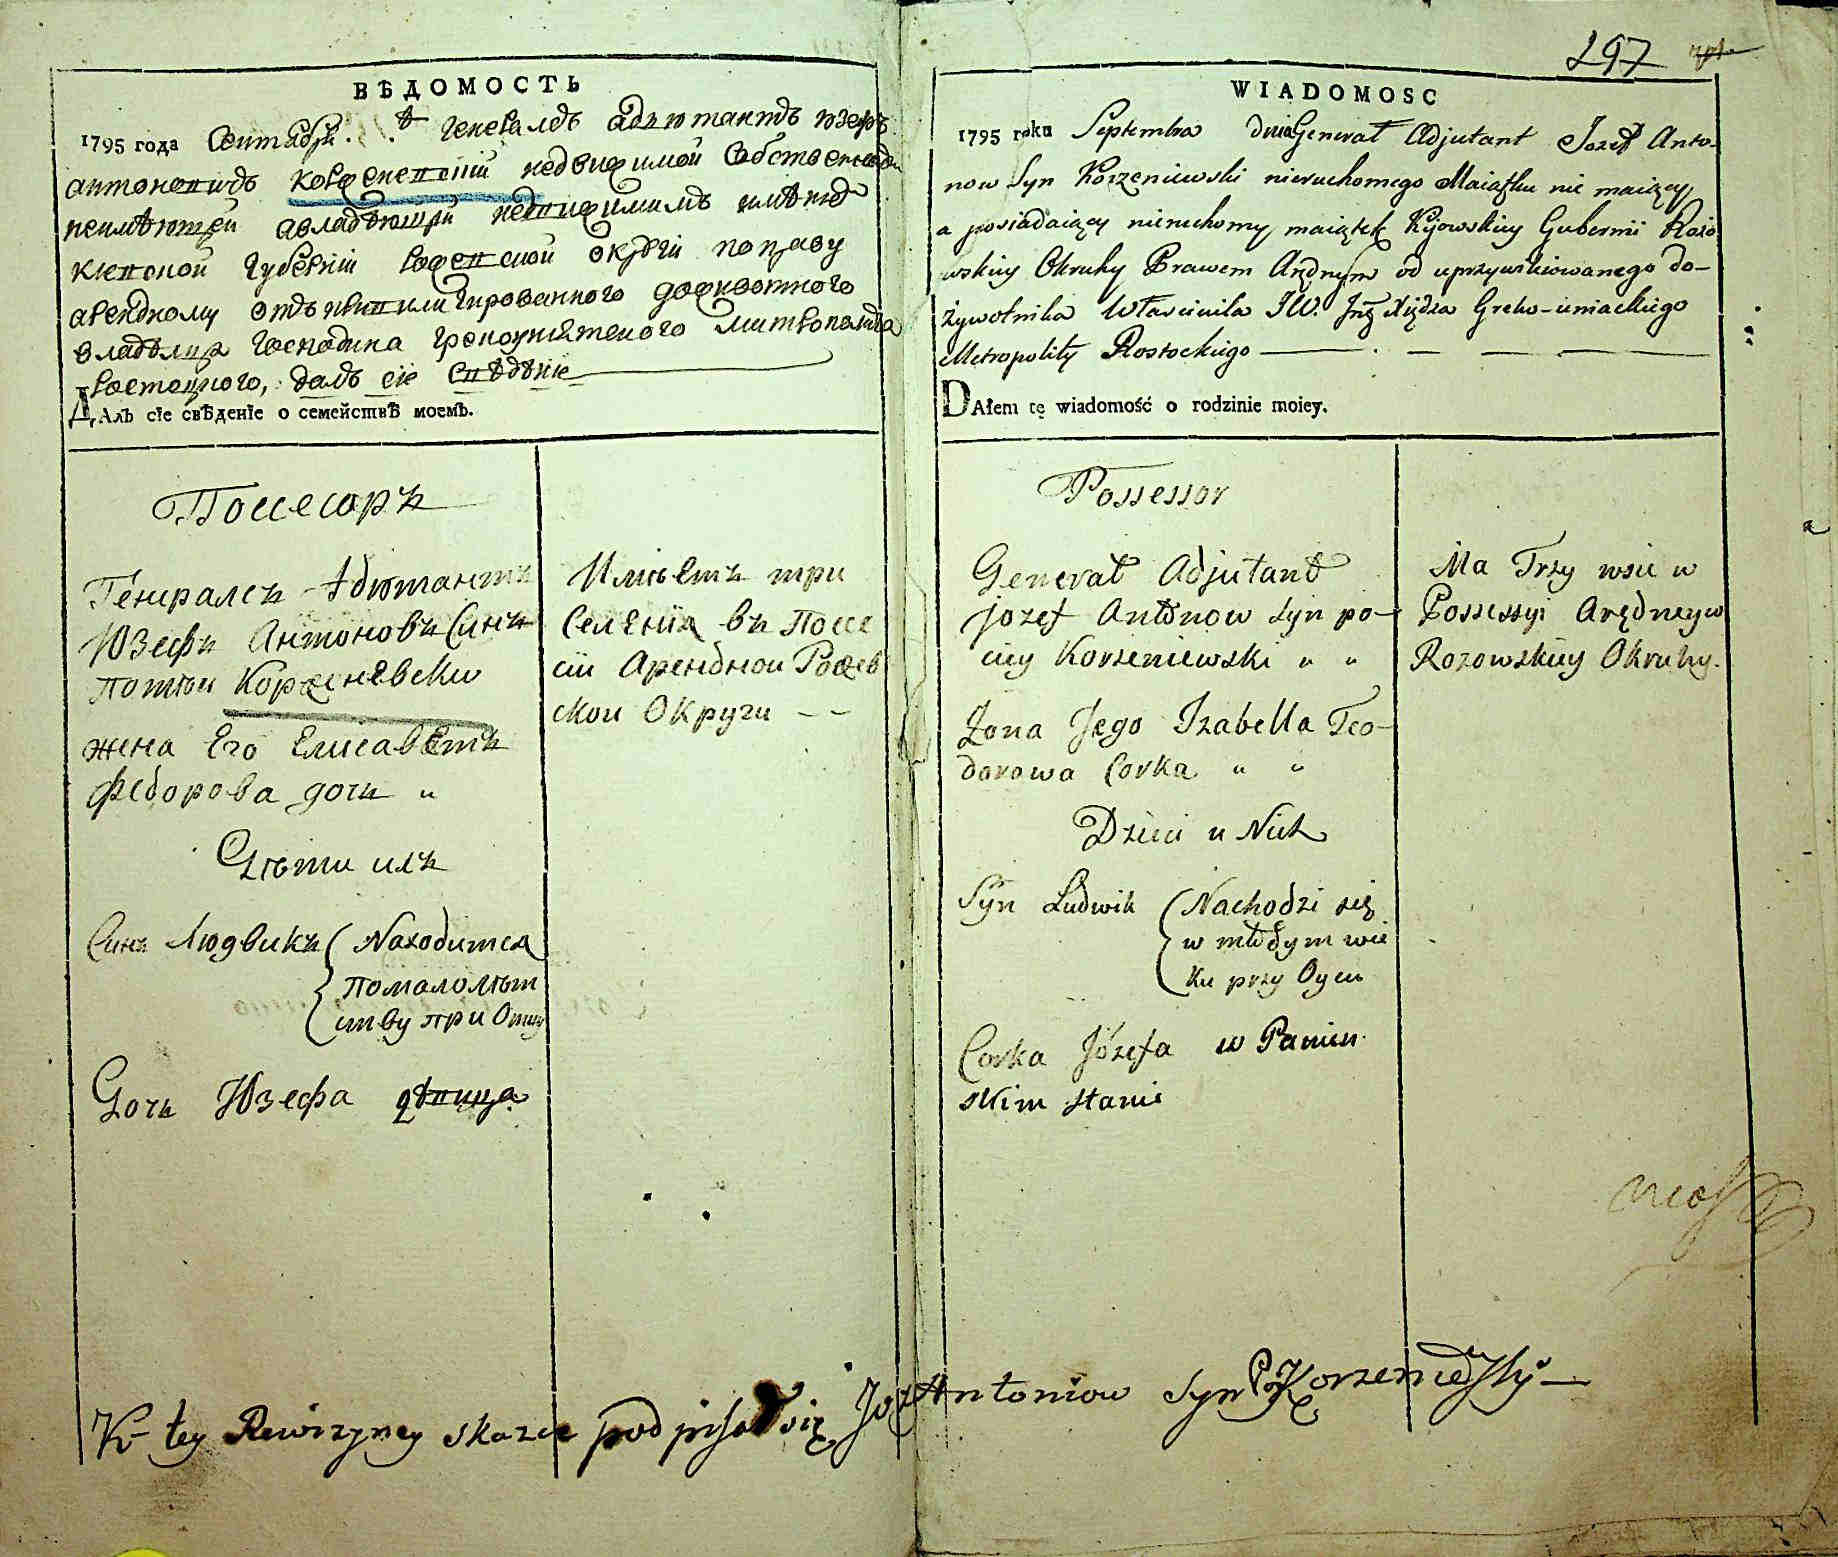 ВѢДОМОСТЬ
1795 года Сентября генералъ адъютантъ юзефъ
антоновичъ корженевскій недвижимой собственности
неимѣющей авладѣющій недвижимымъ имѣніемъ
кіевской губерніи окрѫги поправу
арендному отъ привилигированного доживотного
владѣлца господина грекоуніятского митрополита
ростоцкого, далъ сіе свѣдѣніе
ДАлъ сіе свѣденіе о семействѣ моемъ.
Поссесоръ
Гениралсъ Адютантъ
Юзефъ Антоновъ Синъ
Корженевски
жена Его Елисаветъ
Федорова дочъ "
Дѣти ихъ
Синъ Людвикъ Находится
помалолѣт
ству при Отцу
Дочъ Юзефа дѣвица
Имѣетъ три
Селенія въ Поссе
сіи Арендной Ражев
скои Округи - -
297
WIADOMOSC
1795 roku Septembra dnia Generał Adjutant Jozef Anto-
now Syn Korzeniewski nieruchomego Maiątku nie maiący
a posiadaiący nieruchomy maiątek Kyowskiey Gubernii Rozo
wskiey Okruhy Prawem Arędnym od uprzywileiowanego do-
żywotnika Własciciela JW. Xiędza Greko-uniackiego
Metropolity Rostockiego
DAłem tę wiadomość o rodzinie moiey.
Possessor
Generał Adjutant
Jozef Antonow Syn po-
ciey Korzeniewski " "
Zona Jego Izabella Teo-
dorowa Corka " "
Dzieci u Nich
Syn Ludwik Nachodzi się
w młodym wie
ku przy Oycu
Corka Józefa w Panien
skim stanie
Ma Trzy wsie w
Possessyi Arędney w
Rozowskiey Okruhy.
K tey Rewizyney skazce podpisał się Joz Antoniow Syn Korzeniewsky